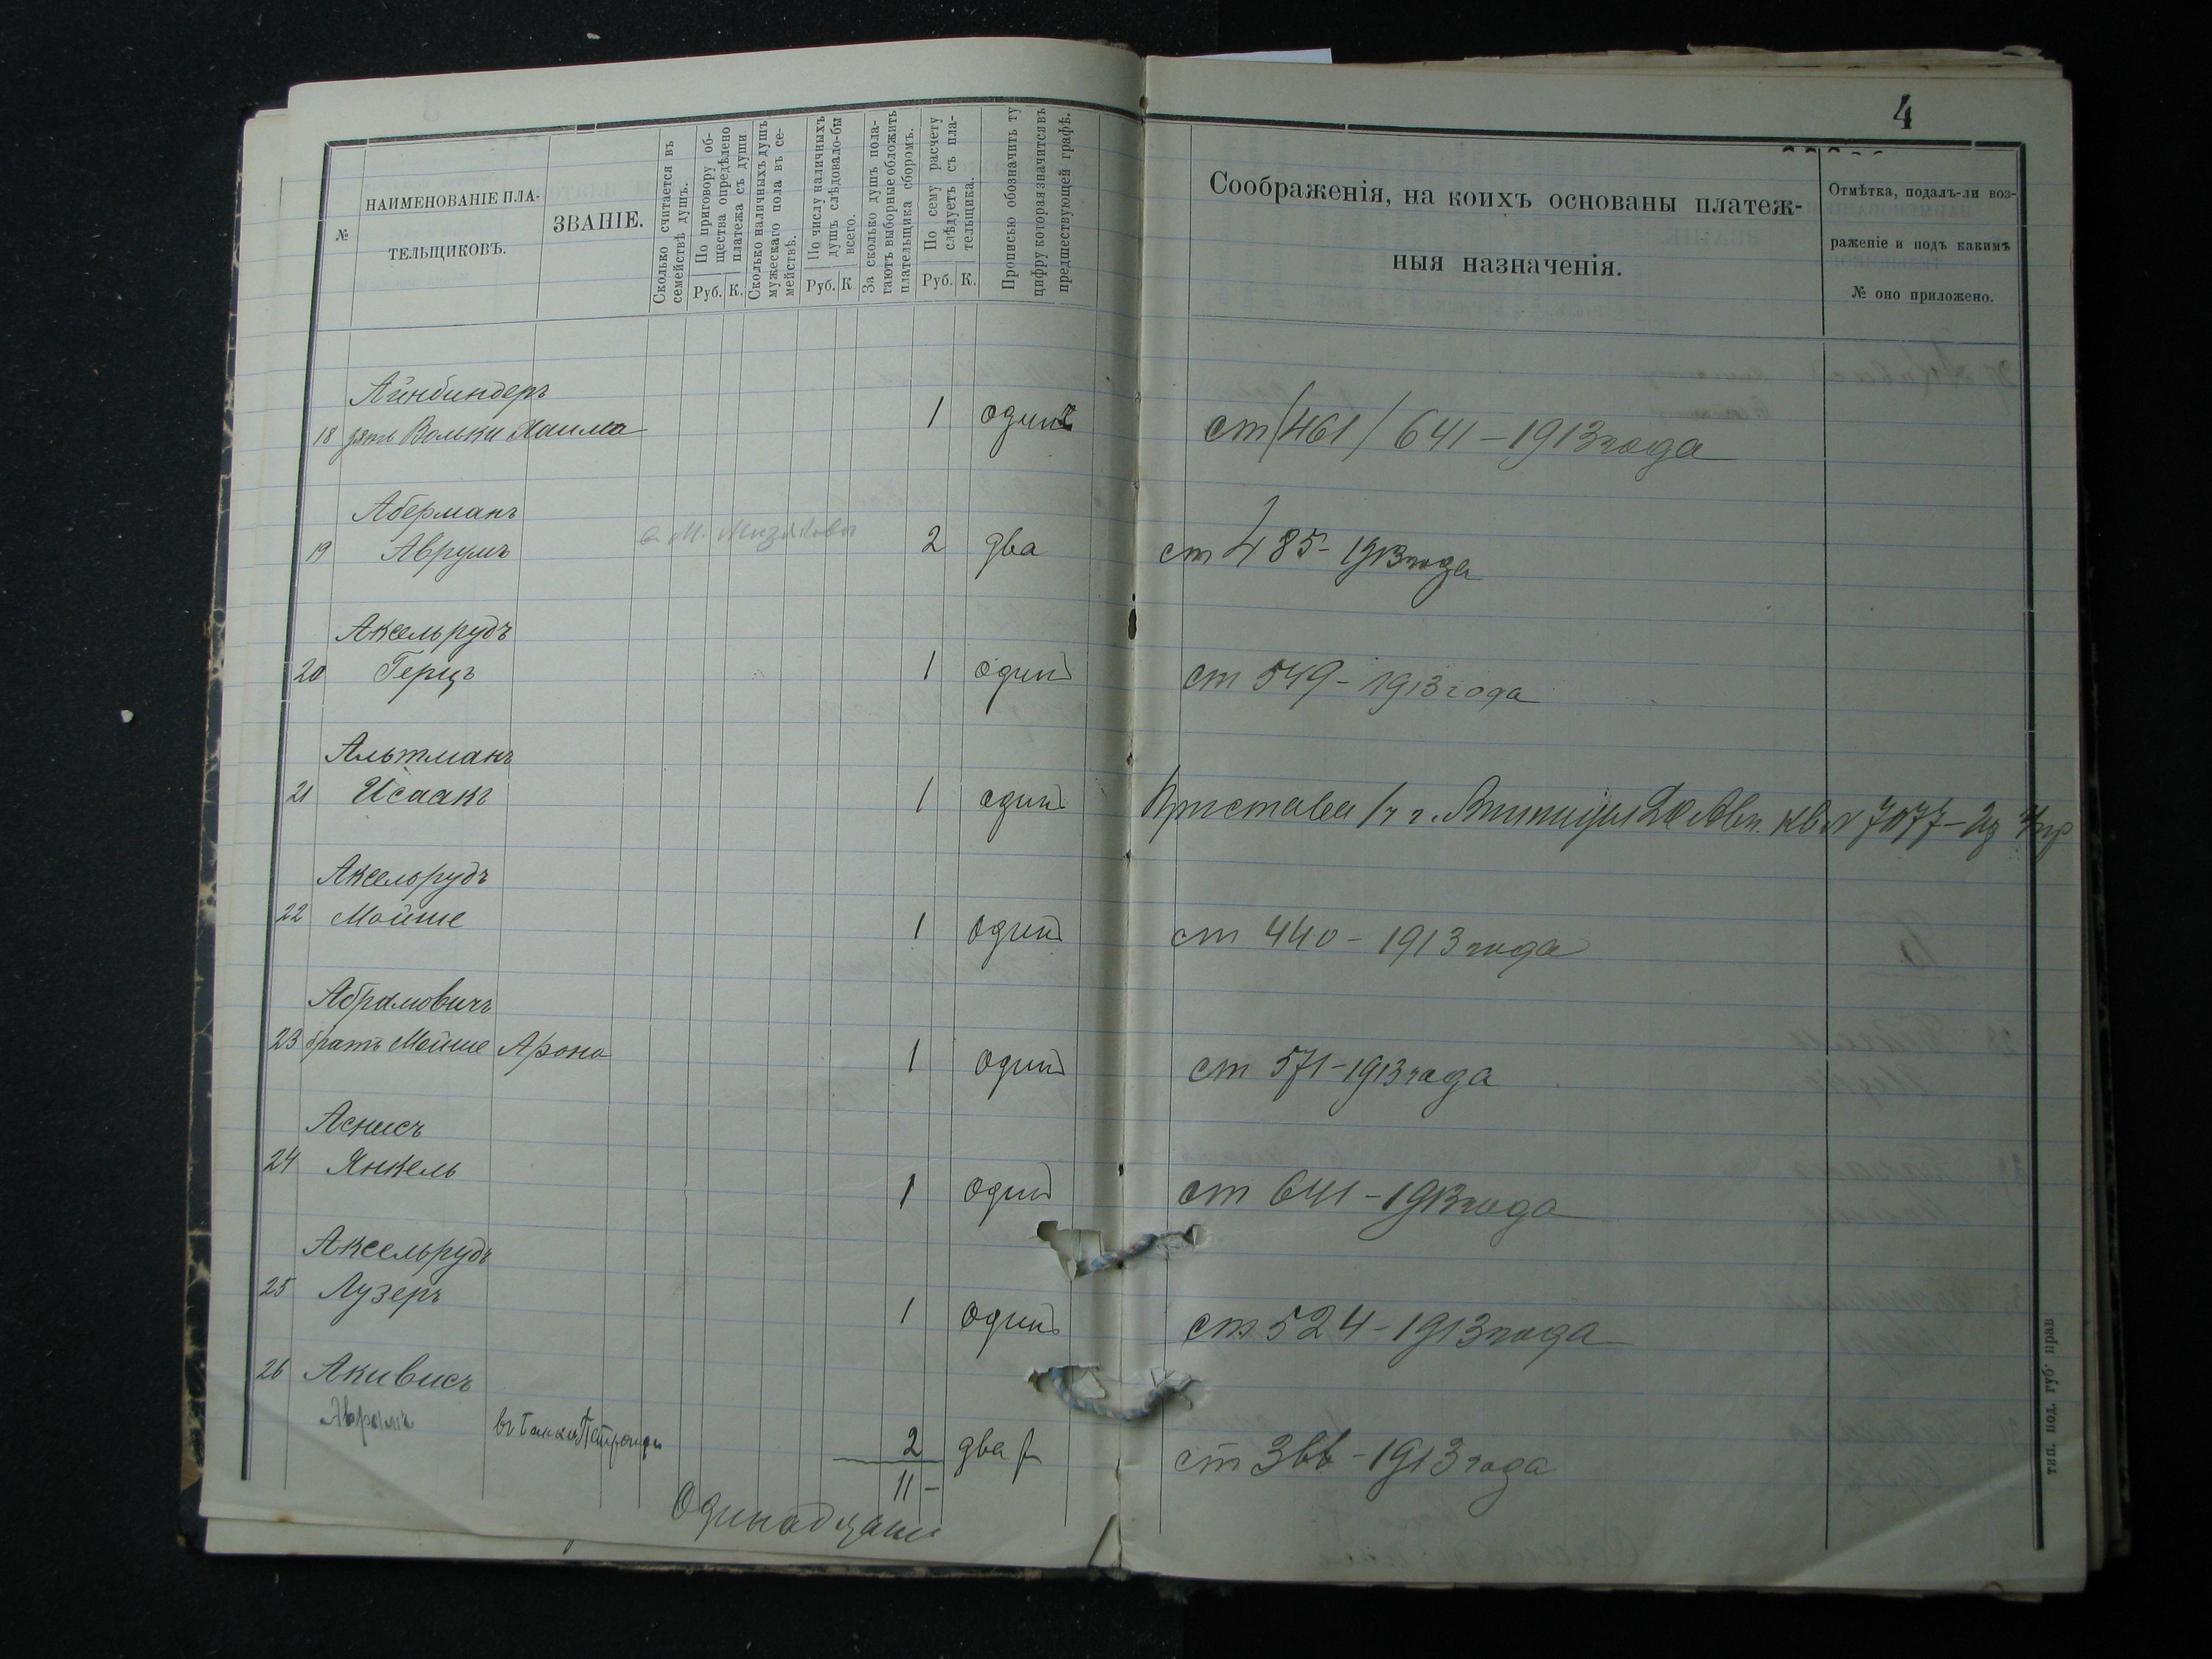 4
№
НАИМЕНОВАНІЕ ПЛА-
ТЕЛЬЩИКОВЪ.
ЗВАНІЕ.
Сколько считается въ
семействѣ душъ.
По приговору об-
щества опредѣлено
платежа съ души
Руб. К.
Сколько наличныхъ душъ
мужескаго пола въ се-
мействѣ.
По числу наличныхъ
душъ слѣдовало-бы
всего.
Руб. К
За сколько душъ пола-
гаютъ выборные обложить
плательщика сборомъ.
По сему расчету
слѣдуетъ съ пла-
тельщика.
Руб. К.
Прописью обозначить ту
цифру которая значится въ
предшествующей графѣ.
Соображенія, на коихъ основаны платеж-
ныя назначенія.
Отмѣтка, подалъ-ли воз-
раженіе и подъ какимъ
№ оно приложено.
Айнбиндеръ
18 зять Вольки Хаима 1 одинъ ст /461/ 641-1913 года
Аберманъ
19 Аврумъ 2 два ст 485-1913 года
Аксельрудъ
20 Герцъ 1 одинъ ст 549-1913 года
Альтманъ
21 Исаакъ 1 одинъ Пристава 1 ч г. Винницы кв № 7077-
Аксельрудъ
22 Мойше 1 одинъ ст 440-1913 года
Абрамовичъ
23 братъ Мойше Арона 1 одинъ ст 571-1913 года
Аснисъ
24 Янкель 1 одинъ ст 641-1913 года
Аксельрудъ
25 Лузеръ 1 одинъ ст 524-1913 года
26 Акивисъ
Аврамъ 2 два р ст 366-1913 года
11 -
Одинадцать
тип. под. губ. прав